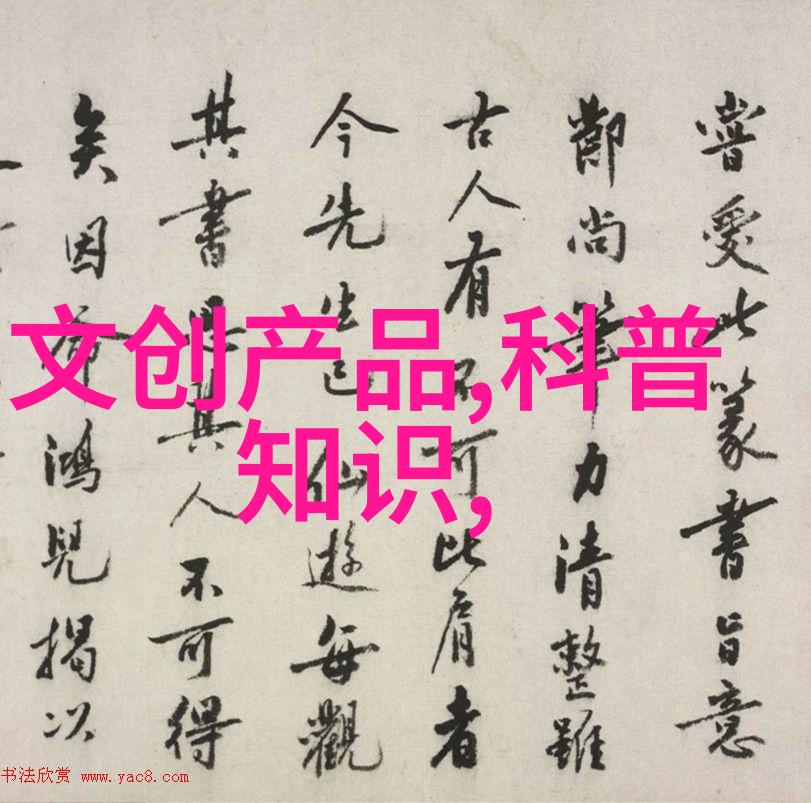 嘗受此篆書旨意
尚筆力清整雖
古人有不可比肩者
今先生已仙遊每觀
其書其人不可得
矣因鴻兒揭以
文创产品,科普
知识,
书法欣赏 www.yac8.com